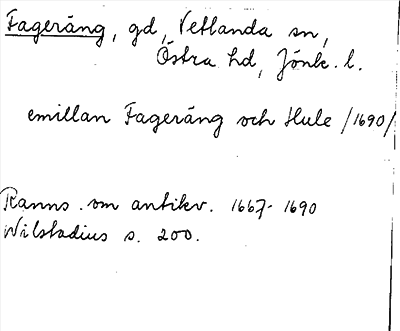 Fageräng, gd, Vetlanda sn,
Östra hd, Jönk. l.
emillan Fageräng och Hule /1690/
Ranns. om antikv. 1667-1690
Wilstadius s. 200.